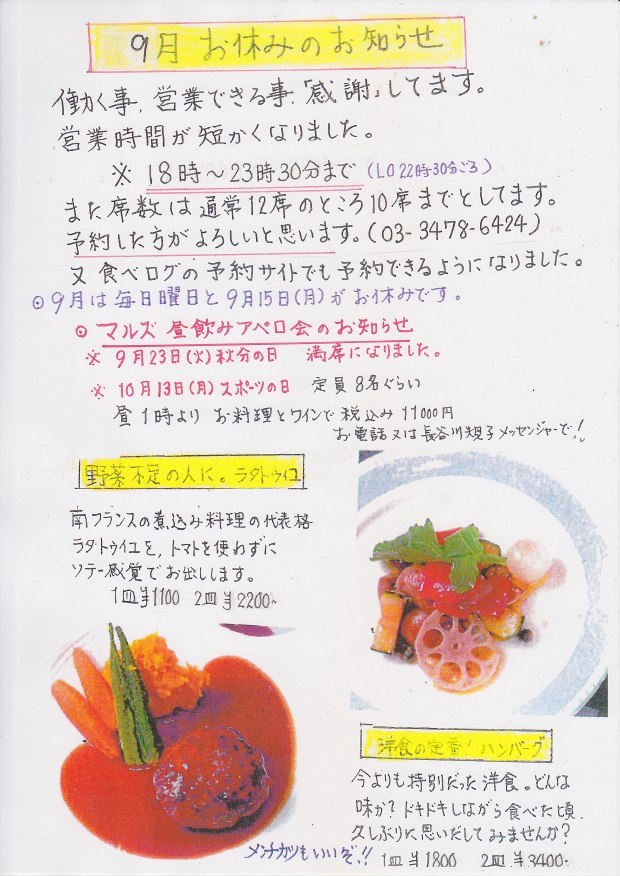 9月 お休みのお知らせ
働かく事、営業できる事、「感謝」してます。
営業時間が短かくなりました。
※ 18時〜23時30分まで (LO 22時30分ごろ)
また席数は通常12席のところ10席までとしてます。
予約した方がよろしいと思います。(03-3478-6424)
又食べログの予約サイトでも予約できるようになりました。
◎9月は毎日曜日と9月15日(月)がお休みです。
◎ マルズ 昼飲みアペロ会のお知らせ
※ 9月23日(火)秋分の日 満席になりました。
※ 10月13日(月)スポーツの日 定員8名ぐらい
昼1時より お料理とワインで 税込み 11000円
お電話又は長谷川 メッセンジャーで!!
野菜不足の人に。ラタトゥイユ
南フランスの煮込み料理の代表格
ラタトゥイユを、トマトを使わずに
ソテー感覚でお出しします。
1皿¥1100 2皿¥2200-
洋食の定番!ハンバーグ
今よりも特別だった洋食。どんな
味か?ドキドキしながら食べた頃、
久しぶりに思いだしてみませんか?
1皿¥1800 2皿¥3400-
メンチカツもいいぞ!!